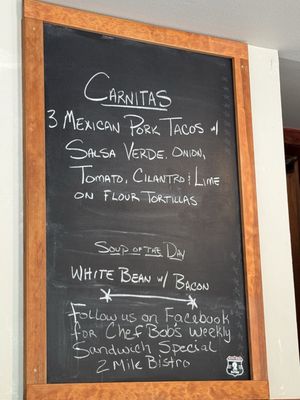 CARNITAS
3 MEXICAN PORK TACOS w/
SALSA VERDE, ONION,
TOMATO, CILANTRO & LIME
ON FLOUR TORTILLAS
SOUP OF THE DAY
WHITE BEAN w/ BACON
Follow us on Facebook
for Chef Bob's Weekly
Sandwich Special
2 Mile Bistro